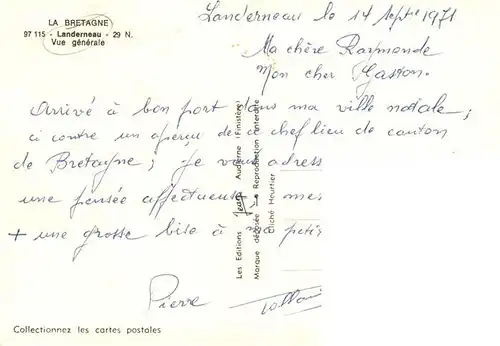 LA BRETAGNE
97 115 - Landerneau - 29 N.
Vue générale
Landerneau le 14 Septre 1971
Ma chère Raymonde
Mon cher Gaston.
Arrivé à bon port dans ma ville natale ;
ci contre un aperçu de ce chef lieu de canton
de Bretagne ; Je vous adress
une pensée affectueuse mes
+ une grosse bise à ma peti
Pierre
Collectionnez les cartes postales
Les Editions Jean Audierne (Finistère)
Marque déposée - Reproduction interdite
Cliché Heurtier